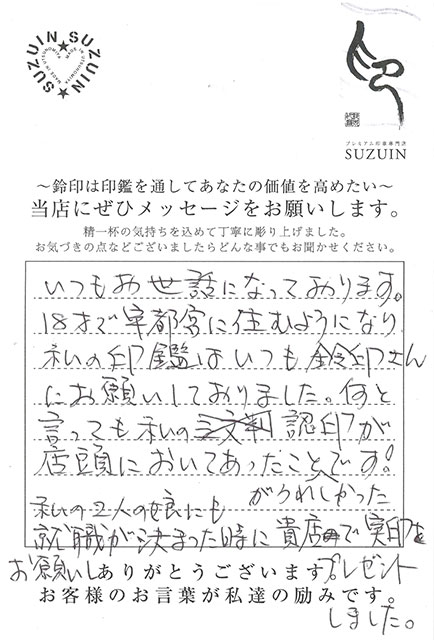 SUZUIN★SUZUIN★
MADE IN UTSUNOMIYA
プレミアム印章専門店
SUZUIN
～鈴印は印鑑を通してあなたの価値を高めたい～
当店にぜひメッセージをお願いします。
精一杯の気持ちを込めて丁寧に彫り上げました。
お気づきの点などございましたらどんな事でもお聞かせください。
いつもお世話になっております。
18才で宇都宮に住むようになり
私の印鑑はいつも鈴印さん
にお願いしておりました。何と
言っても私の三文判 認印が
店頭においてあったことです!
がうれしかった
私の2人の娘にも
就職が決まった時に貴店で実印を
お願いし プレゼント
ありがとうございます。
お客様のお言葉が私達の励みです。
しました。